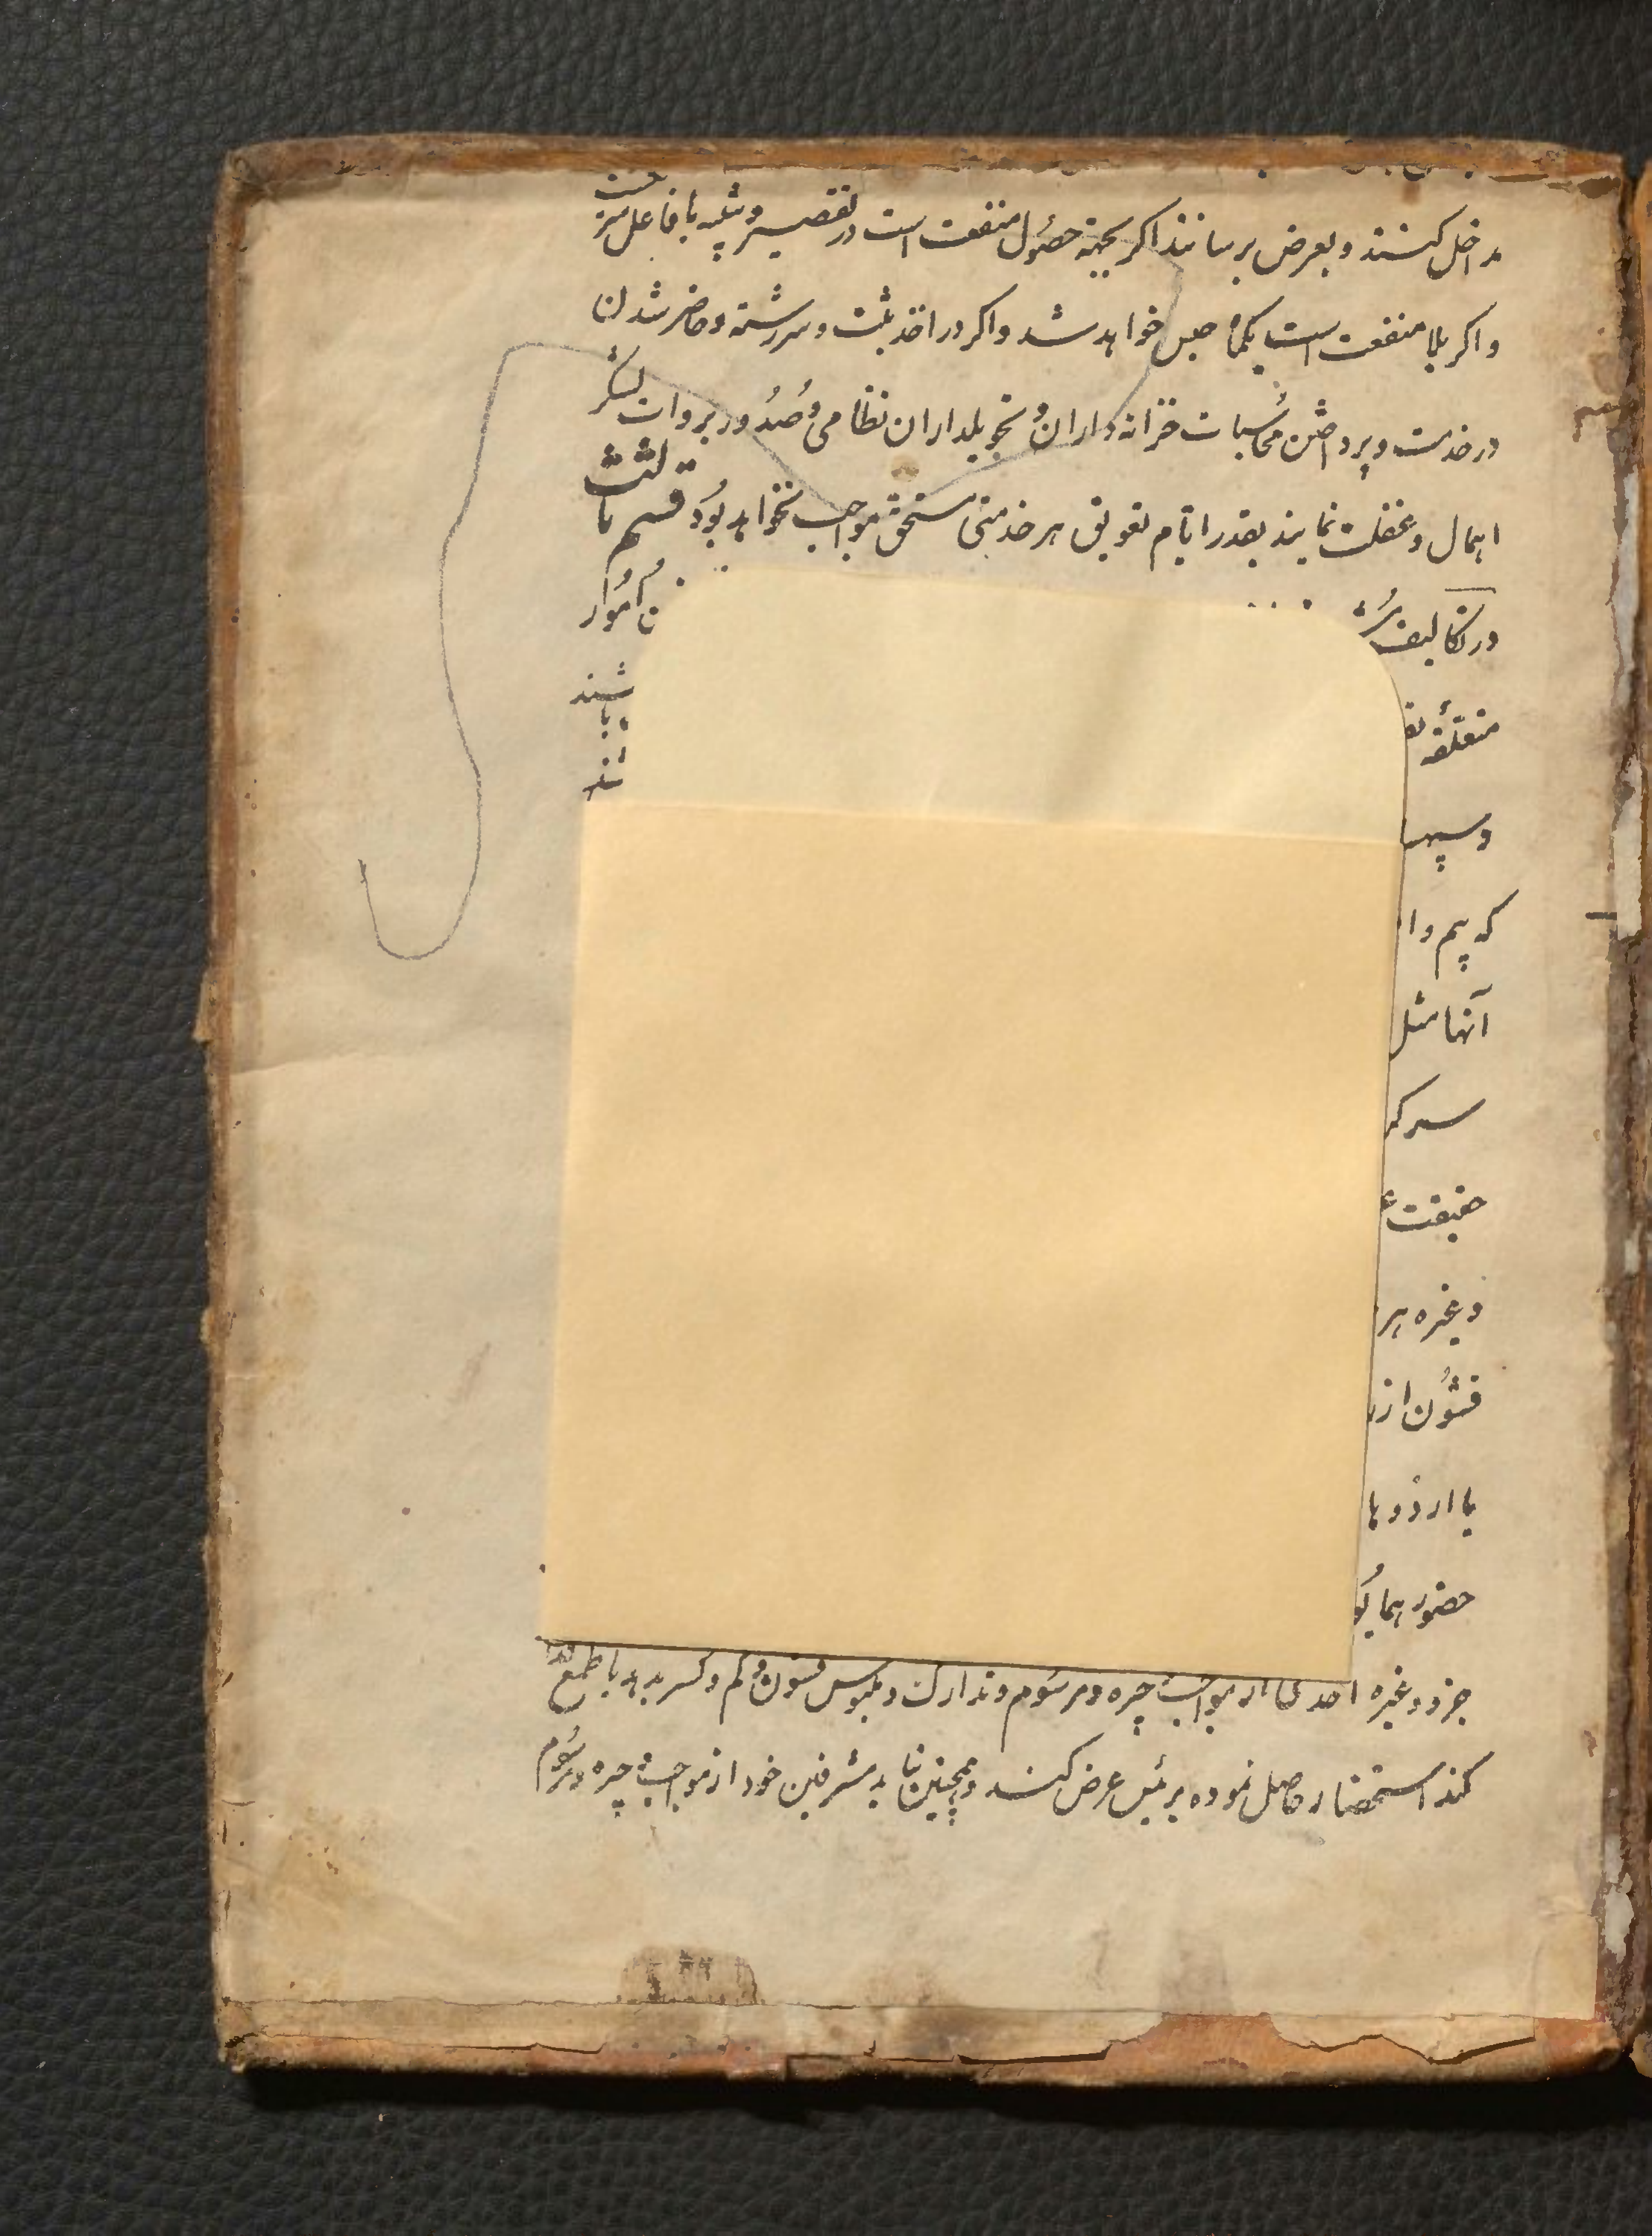 مداخل کنند و بعرض برسانند اکر بجهته حصول منفعت است در تقصیر و تنبیه با فاعل
و اکر بلا منفعت است یکماه حبس خواهد شد و اکر در اخذ ثبت و سررشته و حاضر شدن
در خدمت و پرداختن محاسبات خزانه داران و تحویلداران نظامی و صدور بروات لشکر
اهمال و غفلت نمایند بقدر ایام تعویق هر خدمتی مستحق مواجب نخواهد بود قسم ثالث
در تکالیف امور
متعلقه باشند
وسپه
که بیم و ا
آنها مثل
سرکر
حقیقت
و غیره هر
قشون از
با اردوها
حضور همایو
جزو و غیره احدی از مواجب جیره و مرسوم و تدارک و ملبوس قشون کم و کسر بدهد یا طمع
کند استحضار حاصل نموده برئیس عرض کنند و همچنین نباید مشرفین خود از مواجب جیره و مرسوم